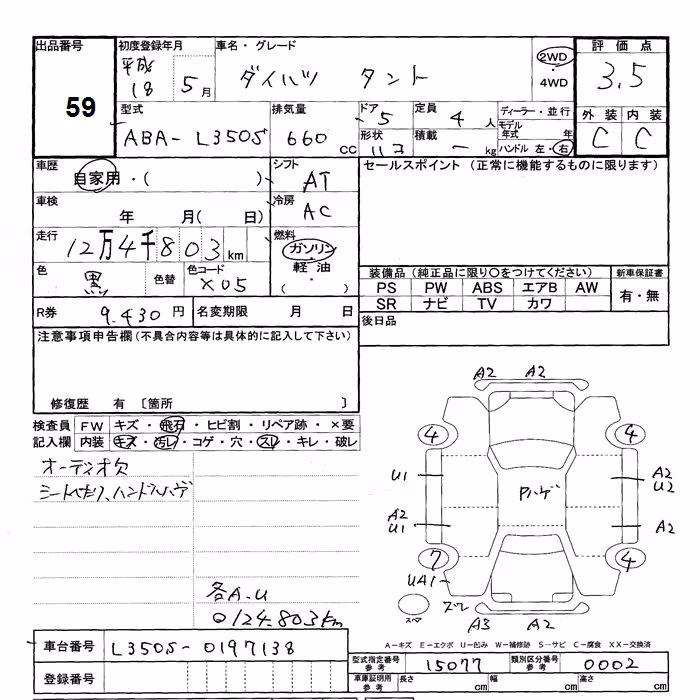 出品番号 初度登録年月 車名・グレード 評価点
59 平成 18 5月 ダイハツ タント 2WD・4WD 3.5
型式 排気量 ドア 定員 ディーラー・並行 外装 内装
ABA-L350S 660 CC 5 4人 モデル年式 年 C C
形状 積載 - kg ハンドル 左・右
車歴 自家用・( ) シフト AT セールスポイント (正常に機能するものに限ります)
車検 年 月( 日) 冷房 AC
走行 12万4千803km 燃料 ガソリン・軽油・( )
色 黒 色替 色コード X05 装備品 (純正品に限り〇をつけてください) 新車保証書
PS PW ABS エアB AW 有・無
SR ナビ TV カワ
R券 9.430円 名変期限 月 日 後日品
注意事項申告欄 (不具合内容等は具体的に記入して下さい)
修復歴 有 〔箇所 〕
検査員 FW キズ・飛石・ヒビ割・リペア跡・×要
記入欄 内装 キズ・汚レ・コゲ・穴・スレ・キレ・破レ
オーディオ欠
シートへたり、ハンドルハゲ
各A.U
〇124.803km
A2 A2
4 4
U1 Pハゲ A2 U2
A2 U1 A2
7 4
UA1
スペア A3 A2
A-キズ E-エクボ U-凹み W-補修跡 S-サビ C-腐食 XX-交換済
車台番号 L350S-0197138
型式指定番号 参考 15077 類別区分番号 参考 0002
登録番号
車庫証明用 参考 長さ cm 幅 cm 高さ cm